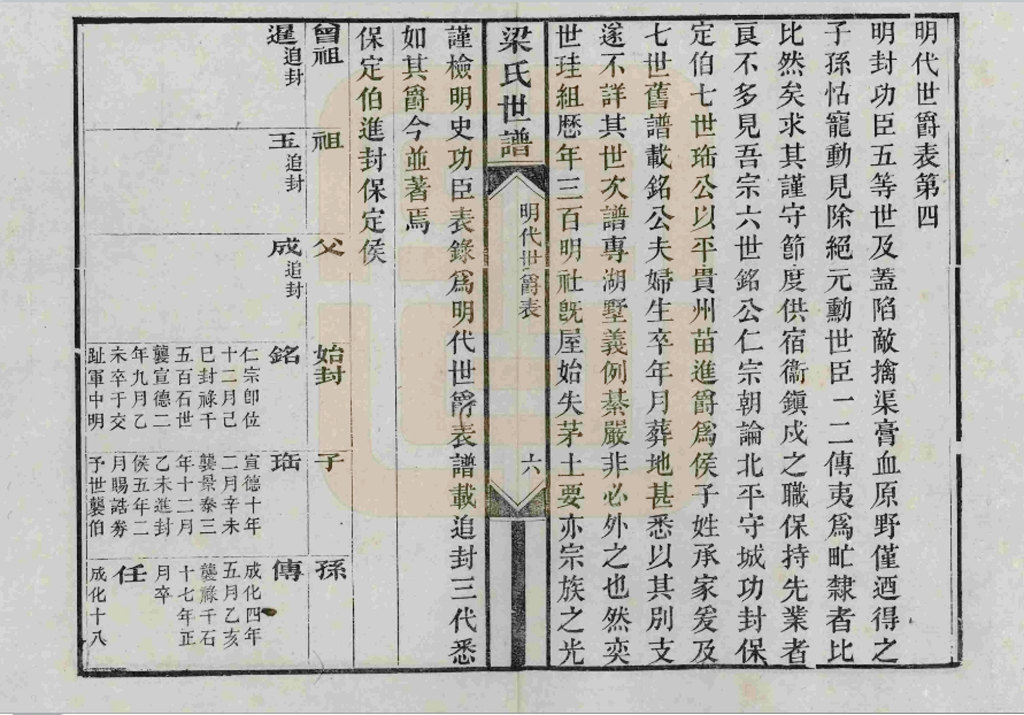 明代世爵表第四
明封功臣五等世及蓋陷敵擒渠膏血原野僅迺得之
子孫怙寵動見除絕元勳世臣一二傳夷爲甿隸者比
比然矣求其謹守節度供宿衞鎭戍之職保持先業者
亰不多見吾宗六世銘公仁宗朝論北平守城功封保
定伯七世珤公以平貴州苗進爵爲侯子姓承家爰及
七世舊譜載銘公夫婦生卒年月葬地甚悉以其別支
遂不詳其世次譜專湖墅義例綦嚴非必外之也然奕
世珪組歷年三百明社旣屋始失茅土要亦宗族之光
梁氏世譜
明代世爵表
六
謹檢明史功臣表錄爲明代世爵表譜載追封三代悉
如其爵今並著焉
保定伯進封保定侯
曾祖
祖
父
始封
子
孫
暹追封
玉追封
成追封
銘
仁宗卽位
十二月己
巳封祿千
五百石世
襲宣德二
年九月乙
未卒于交
趾軍中明
珤
宣德十年
二月辛未
襲景泰三
年十二月
乙未進封
侯五年二
月賜誥券
予世襲伯
傳
成化四年
五月乙亥
襲祿千石
十七年正
月卒
任
成化十八